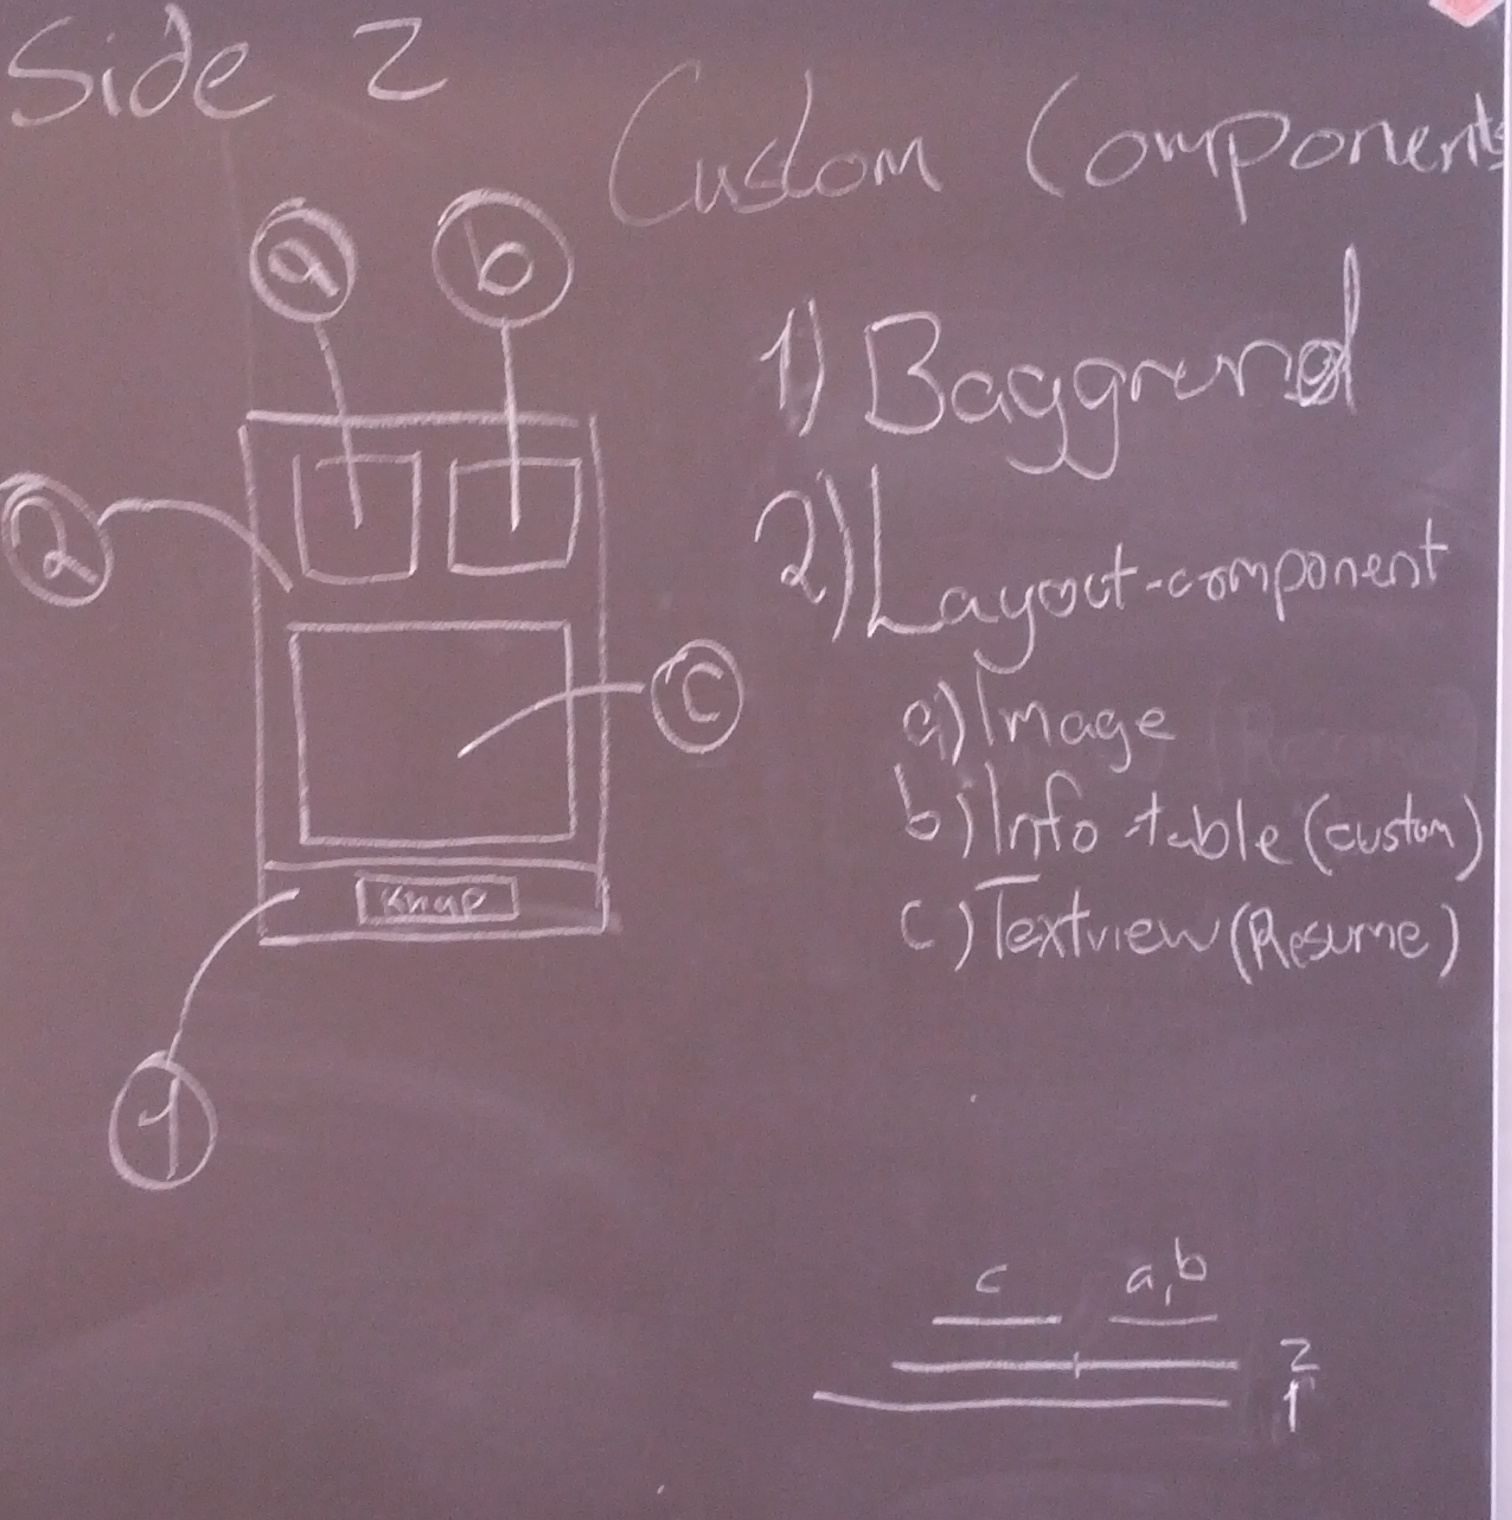 Side 2
Custom Components
a
b
1) Baggrund
2
2) Layout-component
c
a) Image
b) Info table (custom)
Knap
c) Textview (Resume)
1
c a,b
2
1